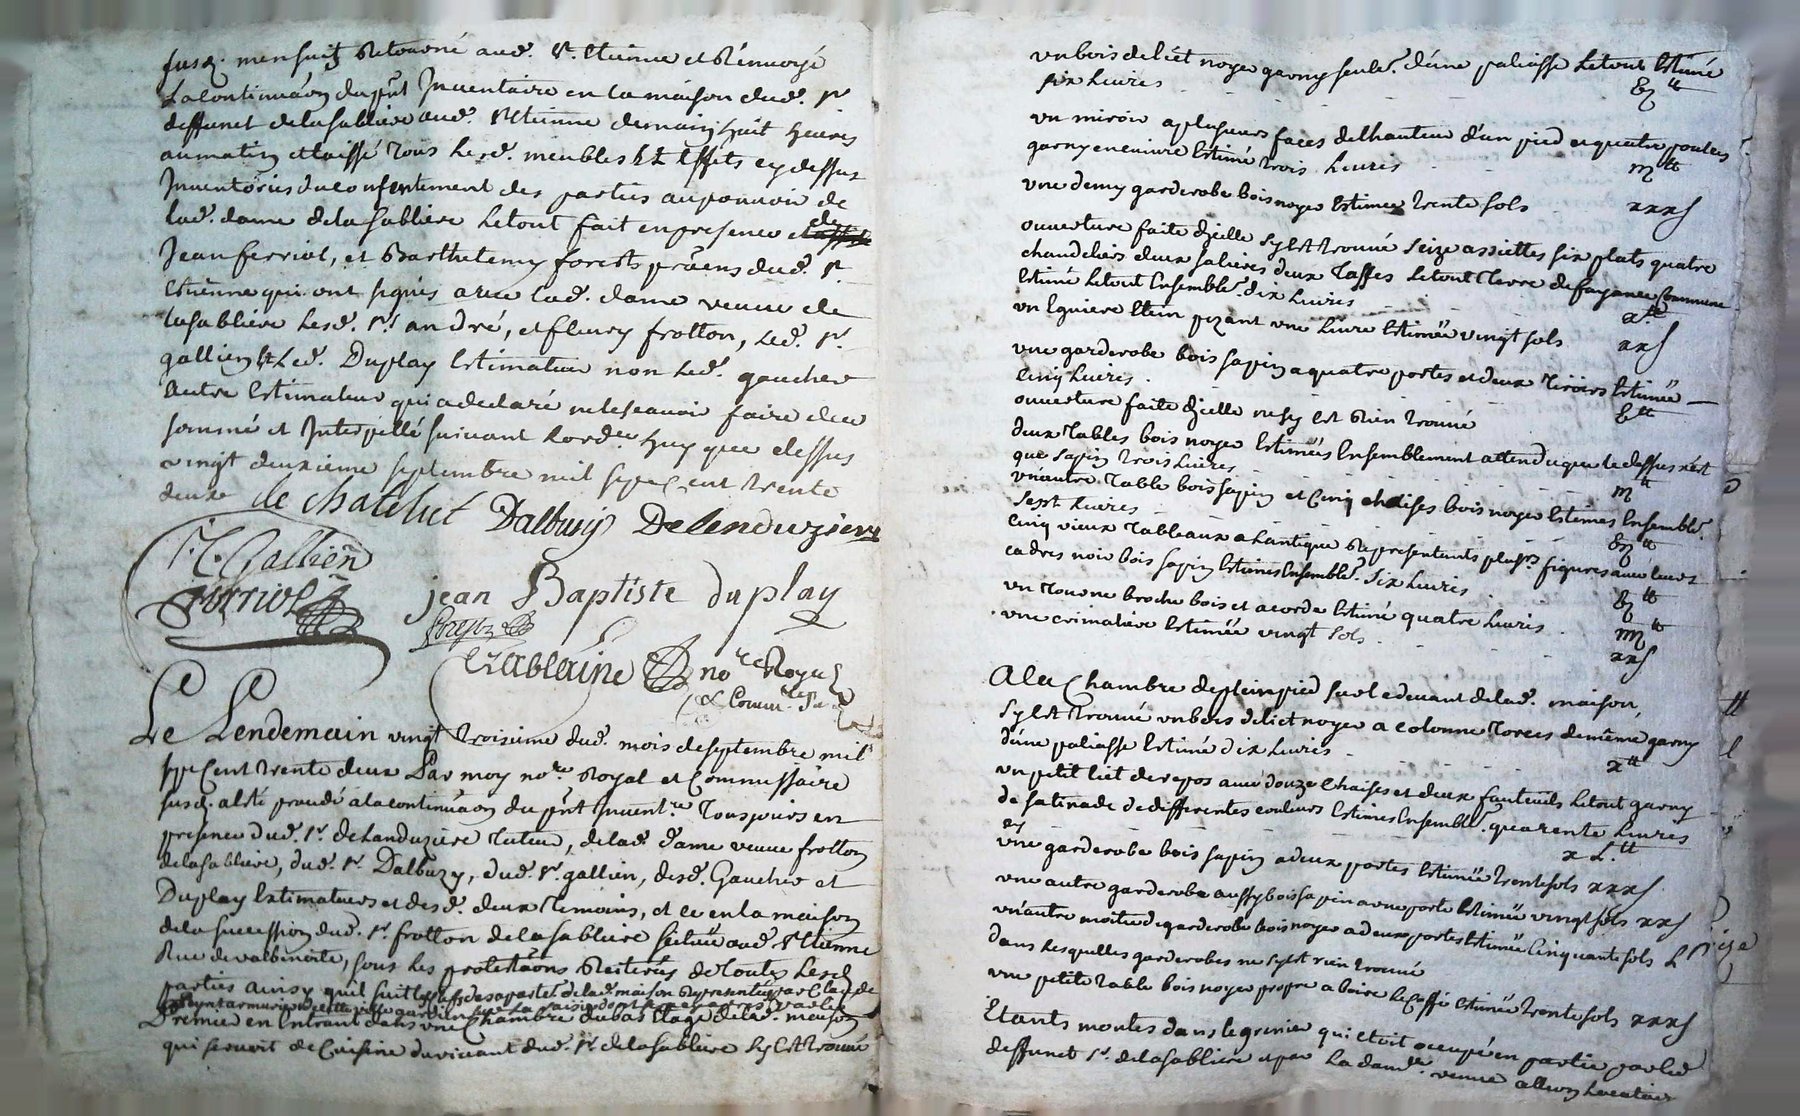 susd. mensuitz Retourné aud. St. Etienne et Renuoyé
La continuãon du pñt Inuentaire en la maison dud. Sr
deffunct delasabliere aud. St Etienne demain huit heures
aumatin et laissé tous lesd. meubles et effets cy dessus
Inuentoriés du consentement des parties aupouuoir de
lad. dame delasabliere letout fait enpresence de
Jean ferriol, et Barthelemy forest pñens dud. St
Etienne qui ont signés auec lad. dame veuue de
lasabliere lesd. Srs andré, et fleury frotton, led. Sr.
gallien et led. Duplay Estimateur non led. gaucher
autre Estimateur qui a declaré nelesçauoir faire dece
sommé et Interpellé suiuant Lordce huy que dessus
vingt deuxieme septembre mil sept cent trente
deux de chatelut Dalbuzy Delenduziere
M. Gallien
ferriol jean Baptiste duplay
forest
Chablaine nore Royal
& Commre
Le Lendemain vingt troisieme dud. mois deseptembre mil
sept Cent trente deux Par moy nore Royal et Commissaire
susd. a été procedé alacontinuãon du pñt Inuentre tousjours en
presence dud. Sr. delanduziere tuteur, delad. dame veuue frotton
delasabliere, dud. Sr. Dalbuzy, dud. Sr. gallien, desd. Gaucher et
Duplay Estimateurs et desd. deux temoins, et ce en la maison
dela succession dud. Sr. frotton delasabliere scituée aud. St Etienne
Rue devalbenoite, sous les protestãons Reiterées detoutes lesd.
parties ainsy quil suit les clefs des aportes delad. maison Representées par
Premier en Entrant dans une Chambre du bas Etage delad. maison
qui seruoit de Cuisine du viuant dud. Sr. delasabliere sy est trouué
un bois de lict noyer garny seulet. d'une paliasse letout Estimé
six Liures vj tt
un miroir a plusieurs faces delhauteur d'un pied et quatre poulces
garny encuiure Estimé trois Liures iij tt
une demy garderobe bois noyer Estimée trente sols xxx s
ouuerture faite d'icelle sy est trouué seize assiettes six plats quatre
chandeliers deux salieres deux tasses letout terre de fayance Commune
Estimé letout Ensemble. dix Liures x tt
un Eguiere Etein pezant une Liure Estimée vingt sols xx s
une garderobe bois sapin a quatre portes et deux tiroirs Estimée
Cinq Liures v tt
ouuerture faite d'icelle ne sy est Rien trouué
deux tables bois noyer Estimées Ensemblement attendu que le dessus n'est
que sapin trois Liures iij tt
un'autre table bois sapin et Cinq chaises bois noyer Estimés Ensemble.
Sept Liures vij tt
Cinq vieux tableaux a Lantique Representants plusrs. figures auec leurs
cadres noir bois sapin Estimes Ensemble. Six Liures vj tt
un tourne broche bois et acorde Estimé quatre Liures iiij tt
une crimaliere Estimée vingt sols xx s
A la Chambre depleinpied sur le deuant delad. maison,
Sy est trouué un bois delict noyer a colonne torces demême garny
d'une paliasse Estimé dix Liures x tt
un petit lict de repos auec douze chaises et deux fauteuils letout garny
de satinade de differentes couleurs Estimes Ensemble. quarente Liures
cy x L. tt
une garderobe bois sapin a deux portes Estimée trente sols xxx s
une autre garderobe aussy bois sapin a une porte Estimée vingt sols xx s
un'autre moitié de garderobe bois noyer a deux portes Estimée Cinquante sols L s
dans lesquelles garderobes ne sy est rien trouué
une petite table bois noyer propre a boire le Caffé Estimée trente sols xxx s
Etants montés dans legrenier qui etoit occupé en partie par led
deffunct Sr. delasabliere et par la damlle. veuue allion Locataire